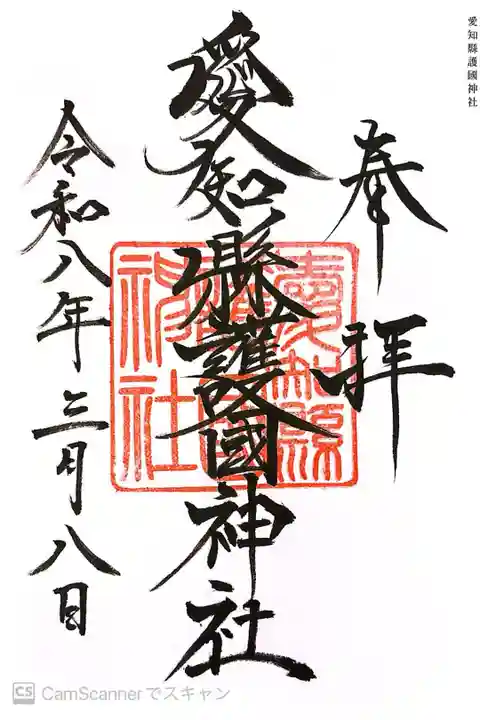 愛知縣護國神社
奉拝
愛知縣護國神社
愛知縣護國神社
令和八年三月八日
CS CamScannerでスキャン